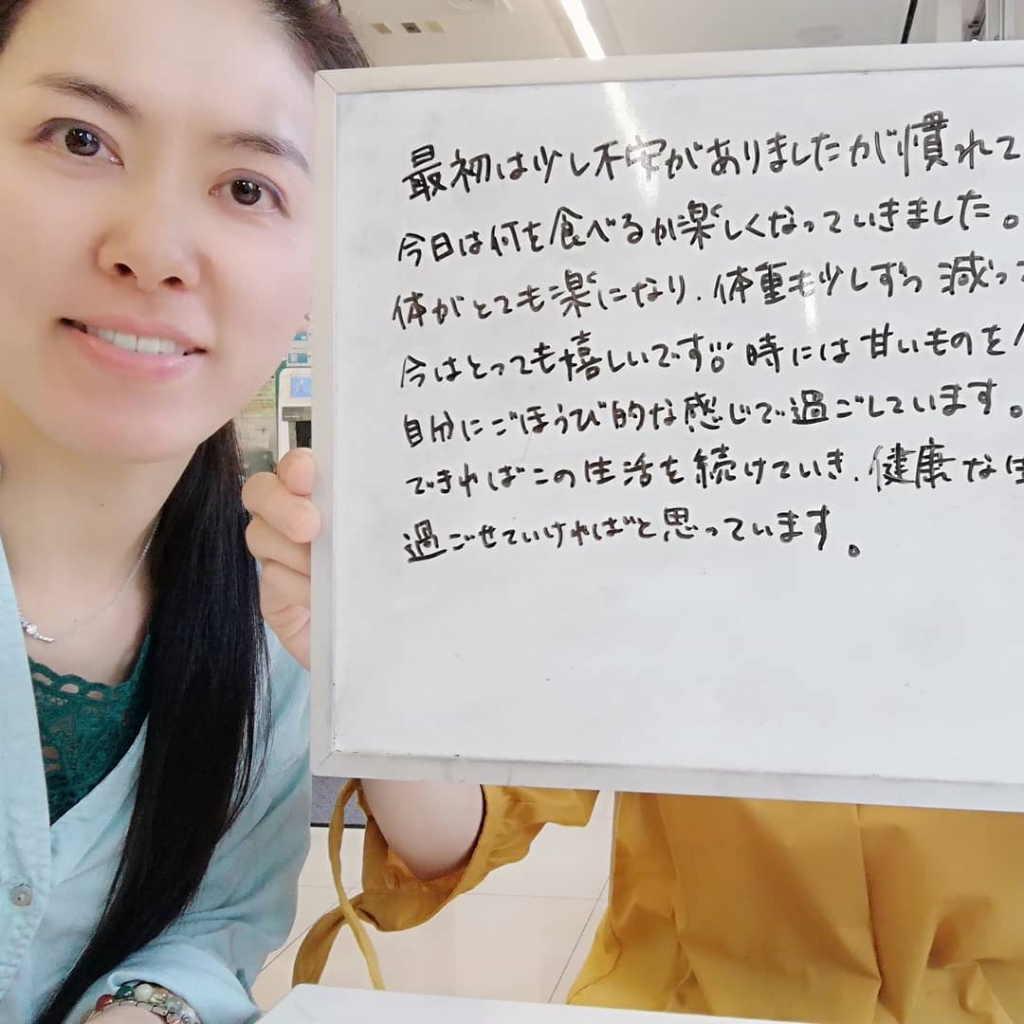 最初は少し不安がありましたが慣れて
今日は何を食べるか楽しくなっていきました。
体がとても楽になり、体重も少しずつ減って
今はとっても嬉しいです。時には甘いものを
自分にごほうび的な感じで過ごしています。
できればこの生活を続けていき、健康な生
過ごせていければと思っています。